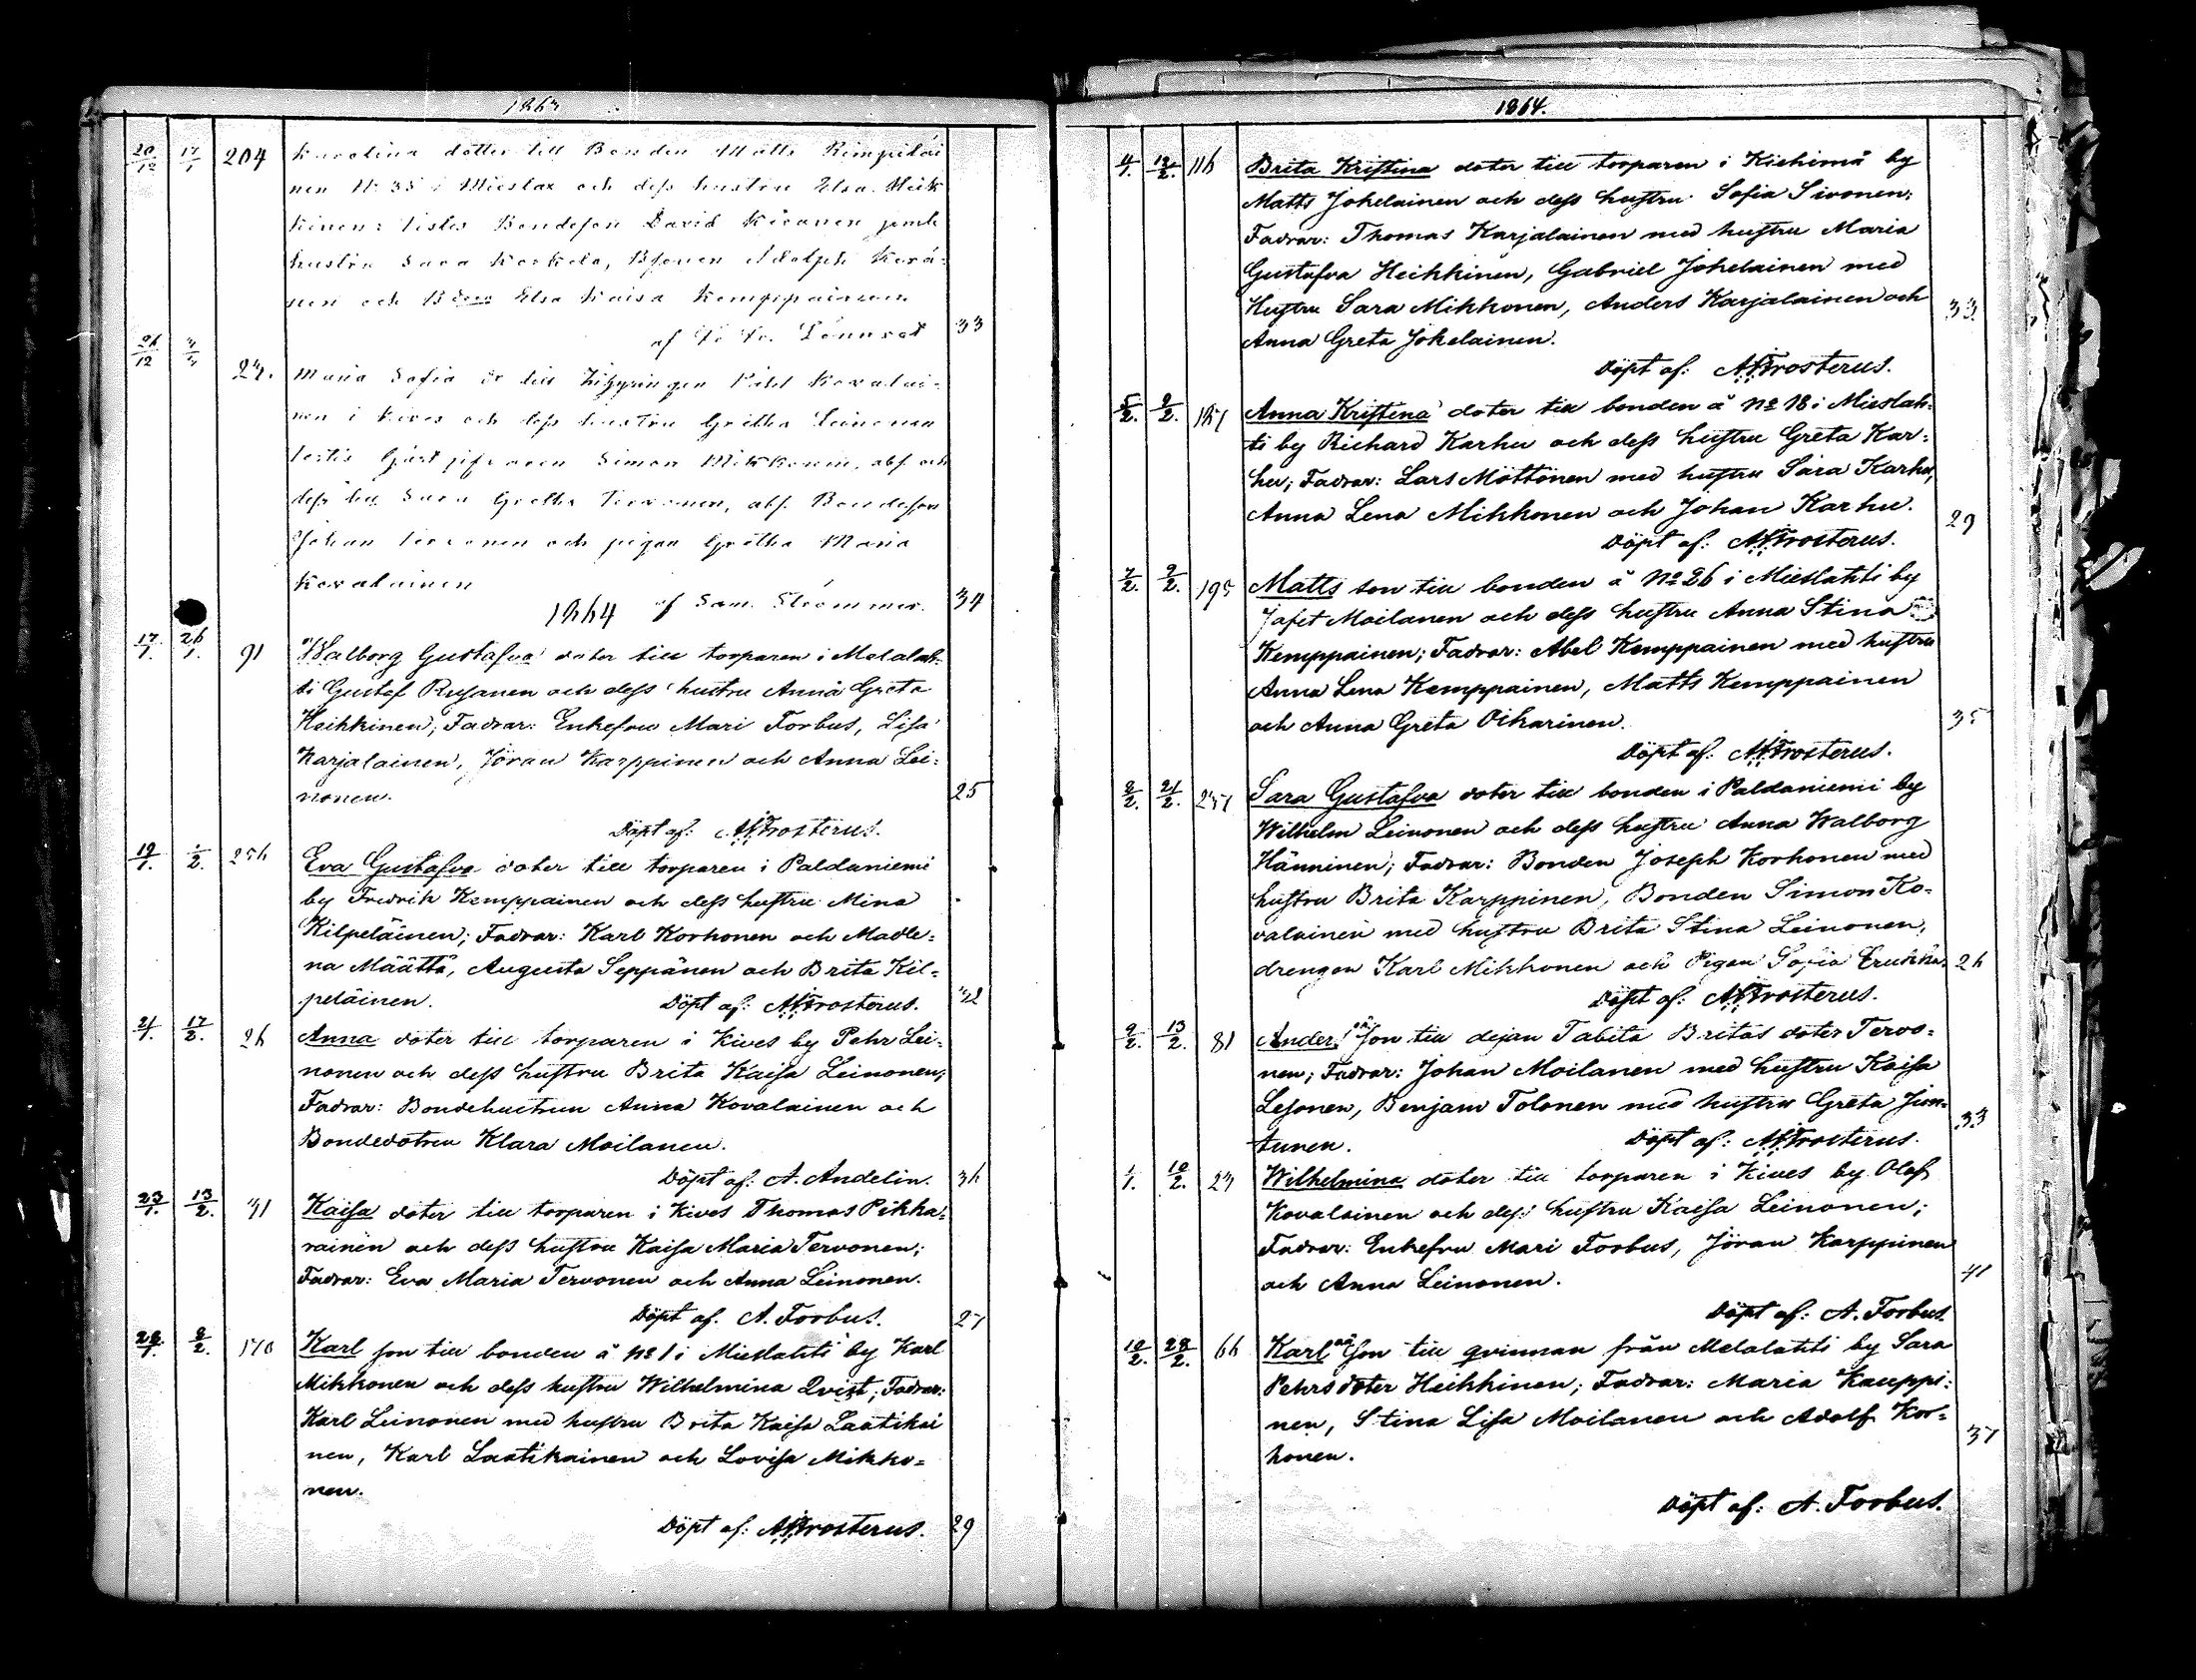 1863
20/12 17/1 204 Karolina dotter till Bonden Matts Rimpiläi
nen N:o 35 i Mieslax och dess hustru Elsa Heik
kinen: Testes Bondeson David Keränen jemte
hustru Sara Korkela, Bsonen Adolph Kerä-
nen och Bdtrn Elsa Kaisa Kemppainen
af Lönnrot 33
26/12 24. Maria Sofia dr till Inhysingen Pähl Kovalai-
nen i Kives och dess hustru Gretha Leinonen
testes Gästgifvaren Simon Mikkonen, abs. och
dess hu Sara Gretha Tervonen, abs. Bondeson
Johan Tervonen och pigan Gretha Maria
Kovalainen
1864 af Sam. Strömmer. 34
17/1. 26/1. 91 Walborg Gustafva doter till torparen i Melalah-
ti Gustaf Rusanen och dess hustru Anna Greta
Heikkinen; Fadrar: Enkefru Mari Forbus, Lisa
Karjalainen, Jöran Karppinen och Anna Lei-
nonen. 25
Döpt af: Frosterus.
19/1. 1/2. 256 Eva Gustafva doter till torparen i Paldaniemi
by Fredrik Kemppainen och dess hustru Mina
Kilpeläinen; Fadrar: Karl Korhonen och Madle-
na Määttä, Augusta Seppänen och Brita Kil-
peläinen. Döpt af: Frosterus. 42
21/1. 17/2. 26 Anna doter till torparen i Kives by Pehr Lei-
nonen och dess hustru Brita Kaisa Leinonen;
Fadrar: Bondehustrun Anna Kovalainen och
Bondedotren Klara Moilanen.
Döpt af: A. Andelin. 36
23/1. 13/2. 41 Kaisa doter till torparen i Kives Thomas Pikka-
rainen och dess hustru Kaisa Maria Tervonen;
Fadrar: Eva Maria Tervonen och Anna Leinonen.
Döpt af. A. Forbus. 27
29/1. 9/2. 170 Karl son till bonden å No 1 i Mieslahti by Karl
Mikkonen och dess hustru Wilhelmina Qvist; Fadrar:
Karl Leinonen med hustru Brita Kaisa Laatikai
nen, Karl Laatikainen och Lovisa Mikko-
nen.
Döpt af: Frosterus. 29
1864.
4/1. 12/2. 116 Brita Kristina doter till torparen i Kiehimä by
Matts Jokelainen och dess hustru Sofia Sironen;
Fadrar: Thomas Karjalainen med hustru Maria
Gustafva Heikkinen, Gabriel Jokelainen med
Hustru Sara Mikkonen, Anders Karjalainen och 33
Anna Greta Jokelainen.
Döpt af: Frosterus.
5/2. 9/2. 187 Anna Kristina doter till bonden å No 18 i Mieslah-
ti by Richard Karhu och dess hustru Greta Kar-
hu; Fadrar: Lars Möttönen med hustru Sara Karhu,
Anna Lena Mikkonen och Johan Karhu. 29
Döpt af: Frosterus.
7/2. 9/2. 195 Matts son till bonden å No 26 i Mieslahti by
Jafet Moilanen och dess hustru Anna Stina
Kemppainen; Fadrar: Abel Kemppainen med hustru
Anna Lena Kemppainen, Matts Kemppainen
och Anna Greta Oikarinen. 35
Döpt af: Frosterus.
8/2. 21/2. 257 Sara Gustafva doter till bonden i Paldaniemi by
Wilhelm Leinonen och dess hustru Anna Walborg
Hänninen; Fadrar: Bonden Joseph Korhonen med
hustru Brita Karppinen, Bonden Simon Ko-
valainen med hustru Brita Stina Leinonen,
drengen Karl Mikkonen och Pigan Sofia 26
Döpt af: Frosterus.
9/2. 13/2. 81 Anders oä son till dejan Tabita Britas doter Tervo-
nen; Fadrar: Johan Moilanen med hustru Kaisa
Lesonen, Benjam Tolonen med hustru Greta Jun-
tunen. Döpt af: Frosterus. 33
1/1. 10/2. 24 Wilhelmina doter till torparen i Kives by Olof
Kovalainen och dess hustru Kaisa Leinonen;
Fadrar: Enkefru Mari Forbus, Jöran Karppinen
och Anna Leinonen. 41
Döpt af: A. Forbus.
12/2. 28/2. 66 Karl oä son till qvinnan från Melalahti by Sara
Pehrsdoter Heikkinen; Fadrar: Maria Kauppi-
nen, Stina Lisa Moilanen och Adolf Kor-
honen. 37
Döpt af: A. Forbus.